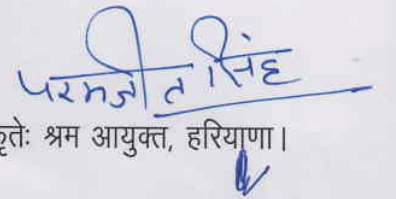 परमजीत सिंह
कृतेः श्रम आयुक्त, हरियाणा।